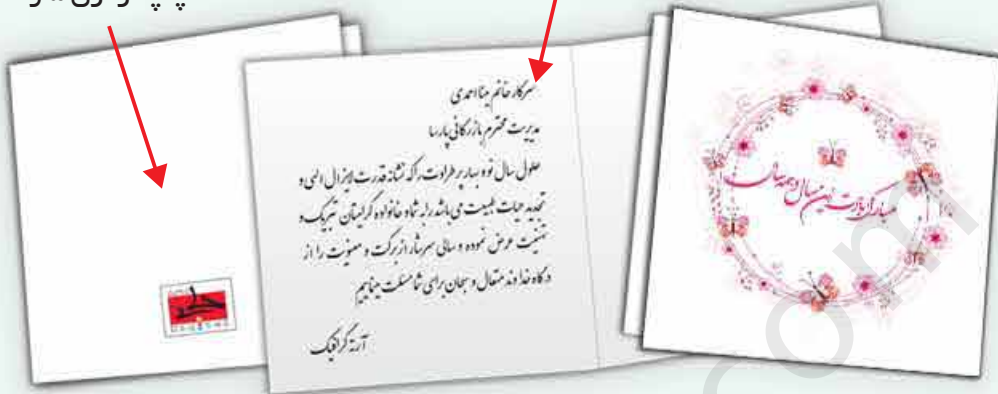 سرکار خانم مینا احمدی
مدیریت محترم بازرگانی پارسا
حلول سال نو و بهار پر طراوت را که نشانه قدرت لایزال الهی و
تجدید حیات طبیعت می باشد را به شما و خانواده گرامیتان تبریک و
تهنیت عرض نموده و سالی سرشار از برکت و معنویت را از
درگاه خداوند متعال و سبحان برای شما مسئلت مینماییم
آرته گرافیک
مبارک بادت این سال و همه سال
com